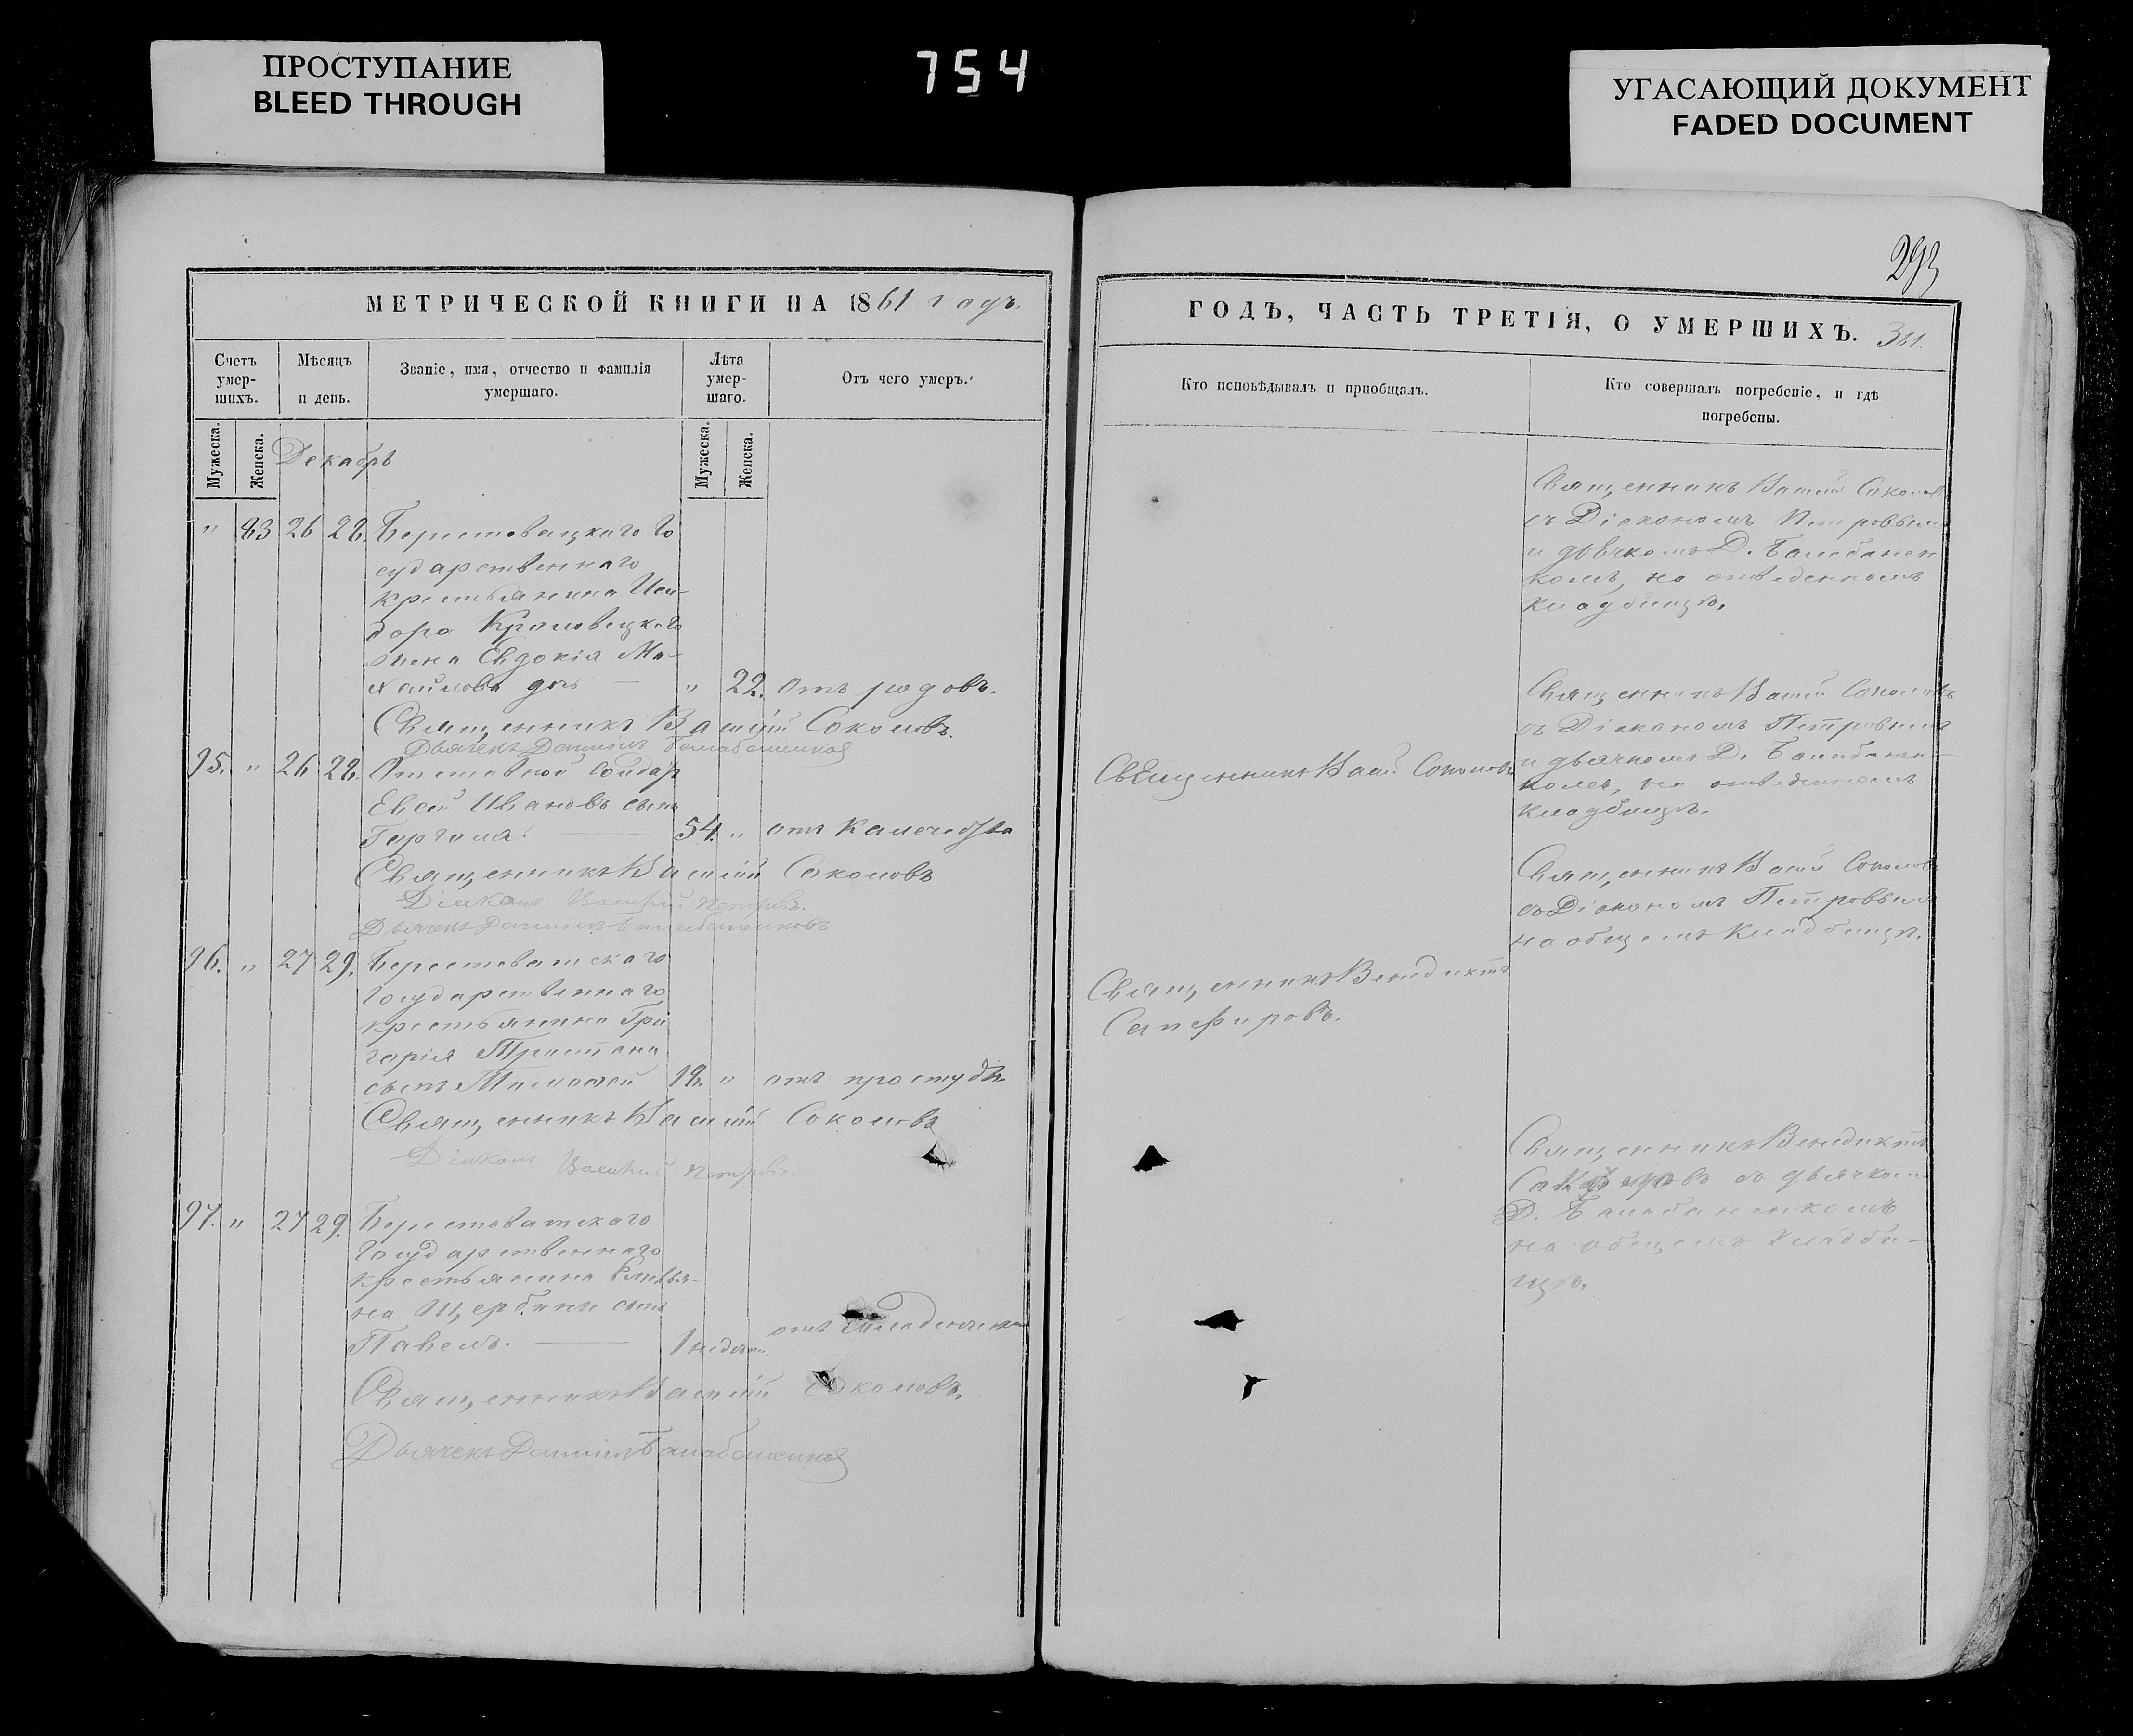 ПРОСТУПАНИЕ
BLEED THROUGH
754
УГАСАЮЩИЙ ДОКУМЕНТ
FADED DOCUMENT
МЕТРИЧЕСКОЙ КНИГИ НА 1861 годъ.
Счетъ умер-шихъ.
Мѣсяцъ и день.
Званіе, имя, отчество и фамилія умершаго.
Лѣта умер-шаго.
Отъ чего умеръ.
Мужеска.
Женска.
Мужеска.
Женска.
Декабрь
" 83 26 28. Берестовацкаго Го
сударственнаго
крестьянина Иси-
дора Крановецкого
жена Евдокія Ми-
хайлова дочь — " 22. отъ родовъ.
Священникъ Василій Соколовъ.
Дьячекъ Даніилъ
95. " 26 28. Отставной Солдатъ
Евсей Ивановъ сынъ
54. " отъ
Священникъ Василій Соколовъ
Діаконъ Василій Петровъ.
Дьячекъ Даніилъ
96. " 27 29. Берестоватскаго
Государственнаго
крестьянина Гри
горія
сынъ Тимофей 18. " отъ простуды
Священникъ Василій Соколовъ
Діаконъ Василій Петровъ.
97. " 27 29. Берестоватскаго
Государственнаго
крестьянина Емелья-
на Щербины сынъ
Павелъ. — 1 недели
Священникъ Василій Соколовъ.
Дьячекъ Даніилъ
293
ГОДЪ, ЧАСТЬ ТРЕТІЯ, О УМЕРШИХЪ. 361.
Кто исповѣдывалъ и пріобщалъ.
Кто совершалъ погребеніе, и гдѣ погребены.
Священникъ Васил Соколовъ
съ Діакономъ Петровымъ
и дьячкомъ Д. Балабанен
комъ, на отведенномъ
кладбищѣ.
Священникъ Васил. Соколовъ
Священникъ Васил Соколовъ
съ Діакономъ Петровымъ
и дьячкомъ Д. Балабанен-
комъ, на отведенномъ
кладбищѣ.
Священникъ Венедиктъ
Сапфировъ.
Священникъ Васил Соколовъ
съ Діакономъ Петровымъ
на общемъ кладбищѣ.
Священникъ Венедиктъ
Сапфировъ съ дьячкомъ
Д. Балабаненкомъ
на общемъ кладби-
щѣ.